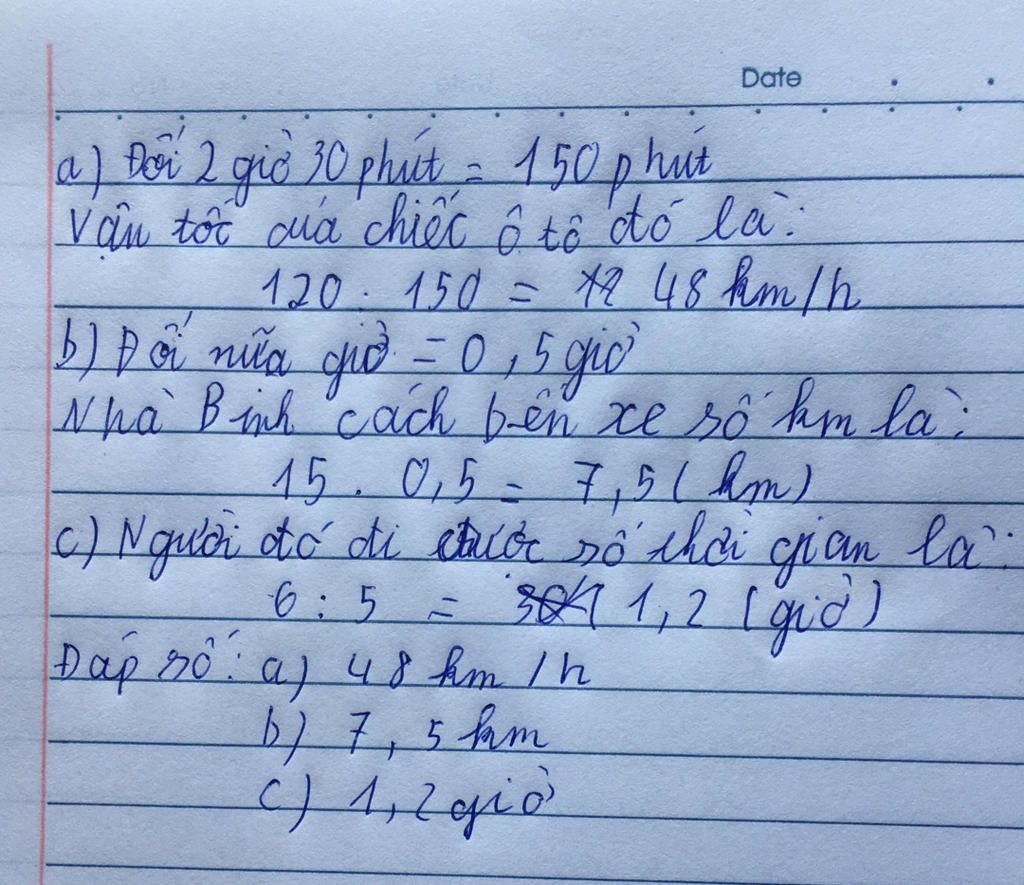 Date
a) Đổi 2 giờ 30 phút = 150 phút
Vận tốc của chiếc ô tô đó là:
120 : 150 = 48 km/h
b) Đổi nữa giờ = 0,5 giờ
Nhà Bình cách bến xe số km là:
15 . 0,5 = 7,5 (km)
c) Người đó đi được số thời gian là:
6 : 5 = 1,2 (giờ)
Đáp số: a) 48 km/h
b) 7,5 km
c) 1,2 giờ